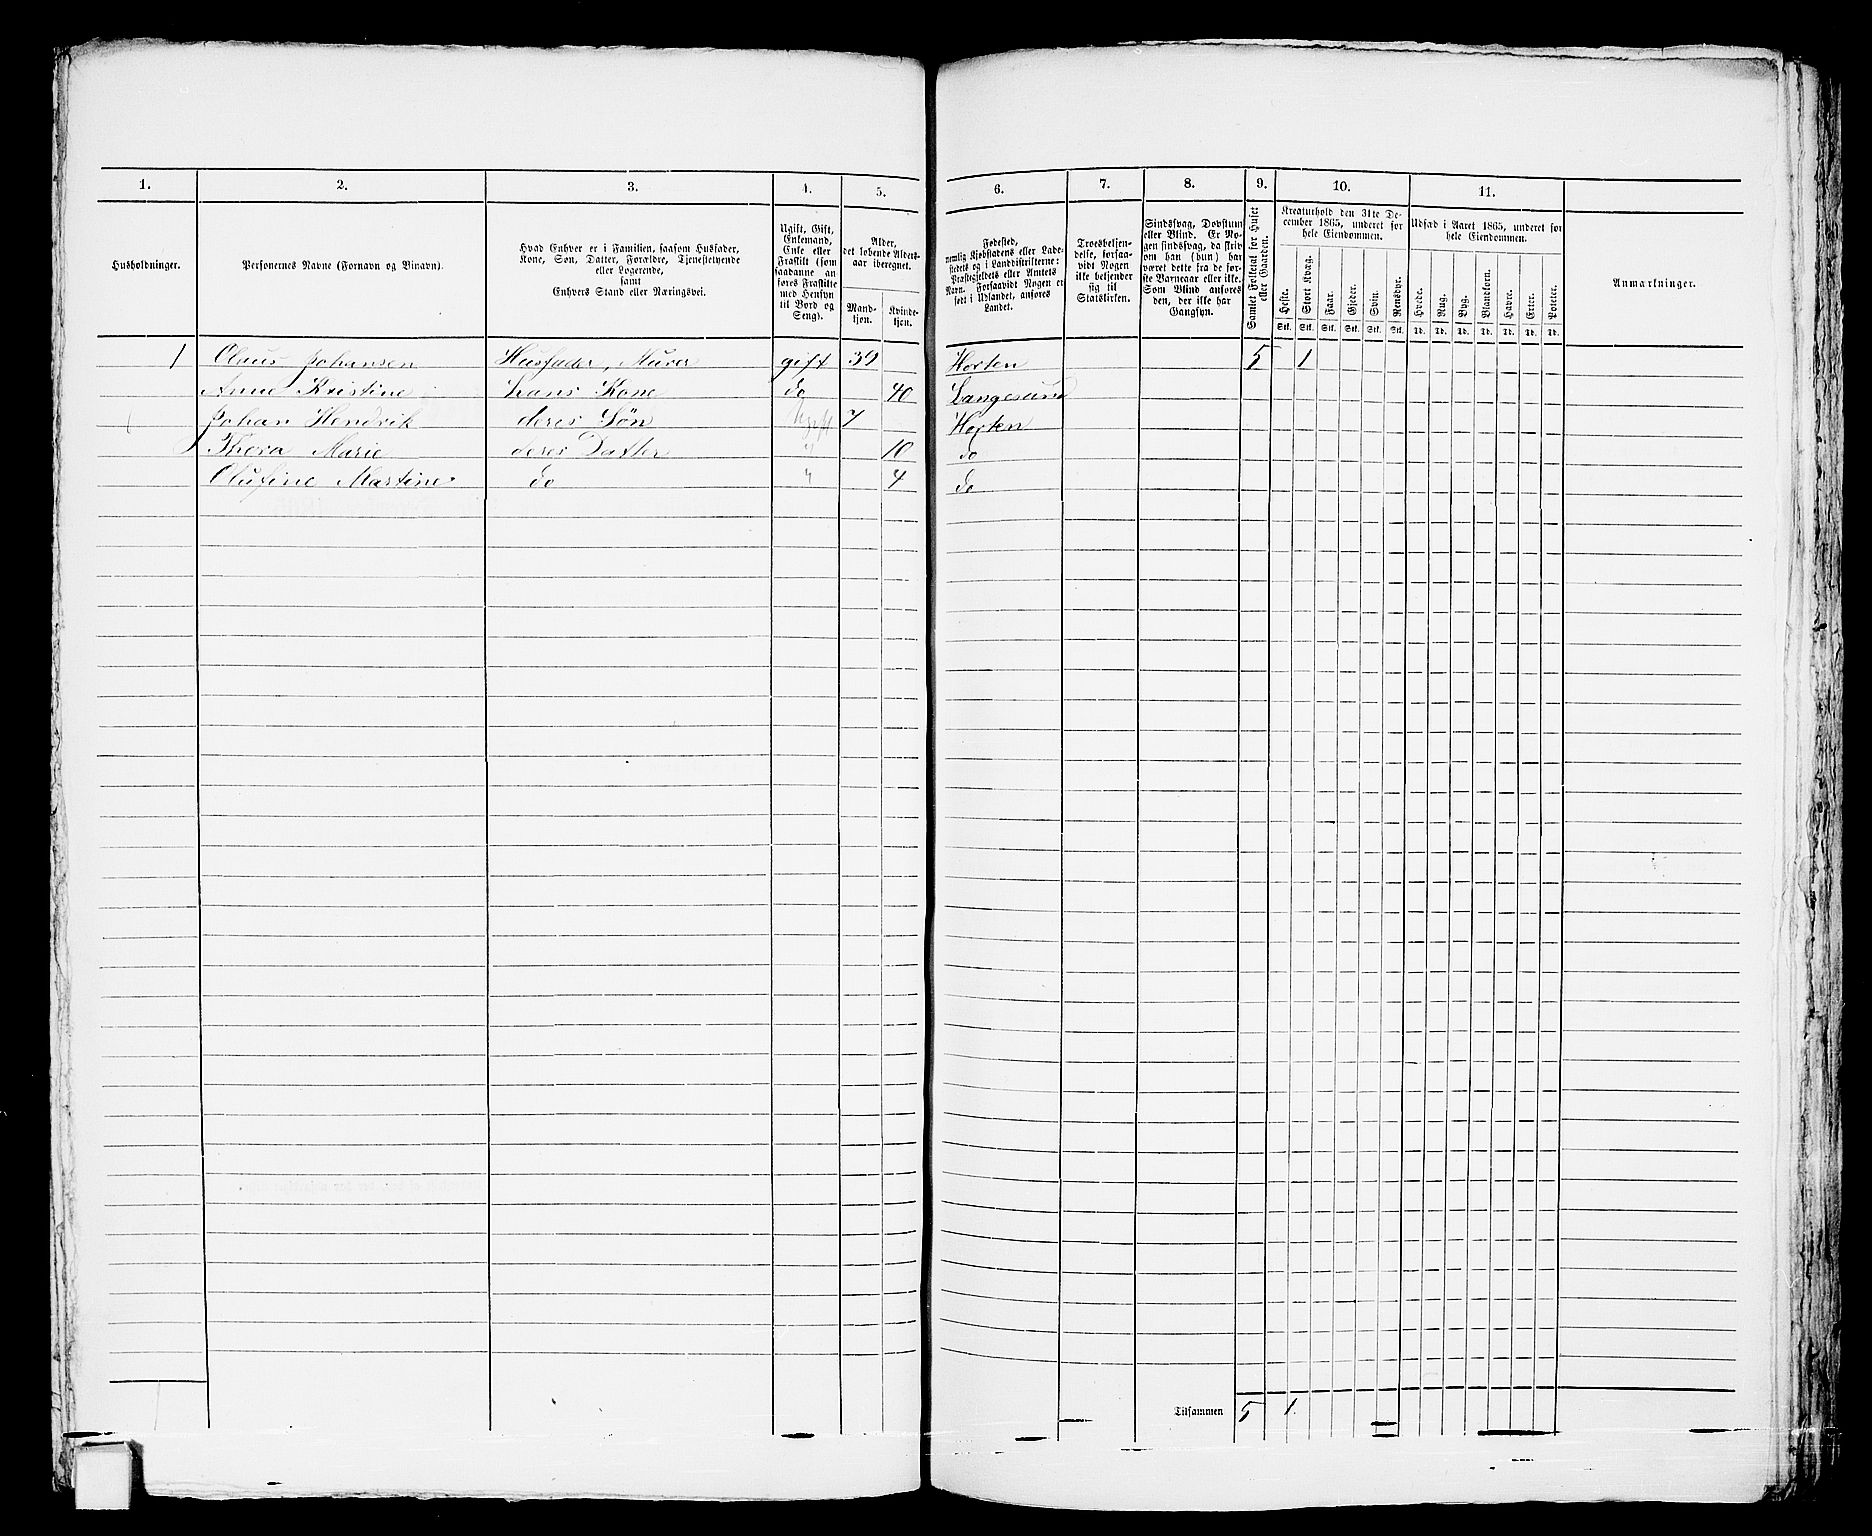 1. 2. 3. 4. 5. 6. 7. 8. 9. 10. 11.
Husholdninger.
Personernes Navne (Fornavn og Binavn).
Hvad Enhver er i Familien, saasom Husfader,
Kone, Søn, Datter, Forældre, Tjenestetyende
eller Logerende,
samt
Enhvers Stand eller Næringsvei.
Ugift, Gift,
Enkemand,
Enke eller
Fraskilt (som
saadanne an-
føres Fraskilte
med Hensyn
til Bord og
Seng).
Alder,
det løbende Alders-
aar iberegnet.
Mand-
kjøn.
Kvinde-
kjøn.
Fødested,
nemlig Kjøbstadens eller Lade-
stedets og i Landdistrikterne:
Præstegjeldets eller Amtets
Navn. Forsaavidt Nogen er
født i Udlandet, anføres
Landet.
Troesbekjen-
delse, forsaa-
vidt Nogen
ikke bekjender
sig til
Statskirken.
Sindssvag, Døvstum
eller Blind. Er No-
gen sindssvag, da skriv
om han (hun) har
været dette fra de før-
ste Barneaar eller ikke.
Som Blind anføres
den, der ikke har
Gangsyn.
Samlet Folketal for Huset
eller Gaarden.
Kreaturhold den 31te De-
cember 1865, underet for
hele Eiendommen.
Heste. Stort Kvæg. Faar. Gjeder. Svin. Rensdyr.
Stk. Stk. Stk. Stk. Stk. Stk.
Udsæd i Aaret 1865, underet for
hele Eiendommen.
Hvede. Rug. Byg. Blandkorn. Havre. Erter. Poteter.
Td. Td. Td. Td. Td. Td. Td.
Anmærkninger.
1 Claus Johansen Husfader, Murer gift 39 Horten 5 1
Anne Kristine hans Kone do 40 Langesund
Johan Hendrik deres Søn Ugift 7 Horten
Thora Marie deres Datter " 10 do
Olufine Martine do " 4 do
Tilsammen 5 1.